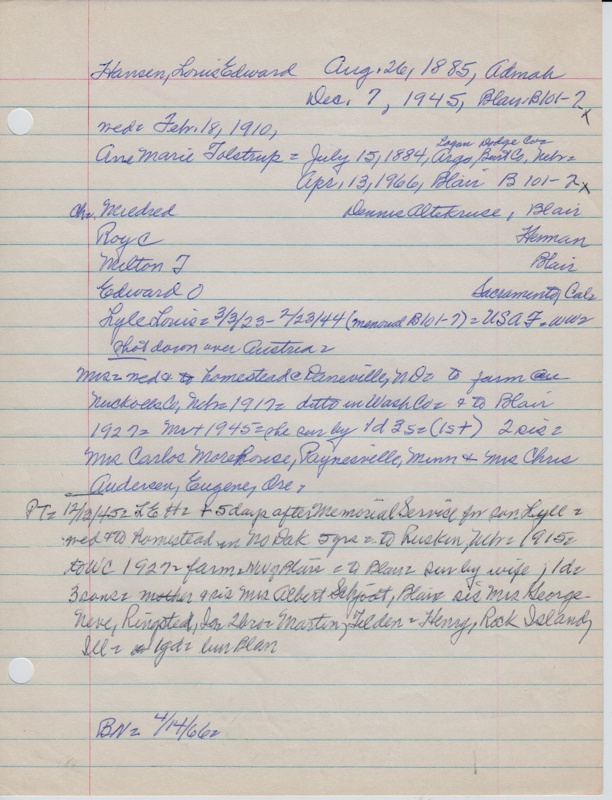 Hansen, Louis Edward Aug. 26, 1885, Admah
Dec. 7, 1945, Blair. B101-7 x
wed= Feb. 18, 1910,
Logan Dodge Co=
Ane Marie Tolstrup = July 15, 1884, Argo, Burt Co, Nebr=
Apr. 13, 1966, Blair B 101-7 x
Ch. Mildred Dennis Altekruse, Blair
Roy C Herman
Milton T Blair
Edward O Sacramento, Cal=
Lyle Louis = 3/3/23 - 2/23/44 (memorial B101-7) = USAF = WW2
Shot down over Austria =
Mrs= wed & to homestead @ Daneville, ND= to farm
Nuckolls Co, Nebr= 1917= ditto in Wash Co= & to Blair
1927= Mr + 1945= she sur by 1d 3s= (1s+) 2 sis=
Mrs Carlos Morehouse, Paynesville, Minn & Mrs Chris
Andersen, Eugene, Ore,
PT= 12/13/45= LEH= + 5 days after Memorial Service for son Lyle =
wed & to homestead in No Dak 5 yrs= to Ruskin, Nebr= 1915=
to WC 1927= farm= NW of Blair = to Blair= sur by wife, 1d=
3 sons= mother & sis Mrs Albert Blair sis Mrs George
Neve, Ringsted, Ia= 2 bro= Martin, Tilden= Henry, Rock Island,
Ill= 1gd= bur Blair
BN= 4/14/66=